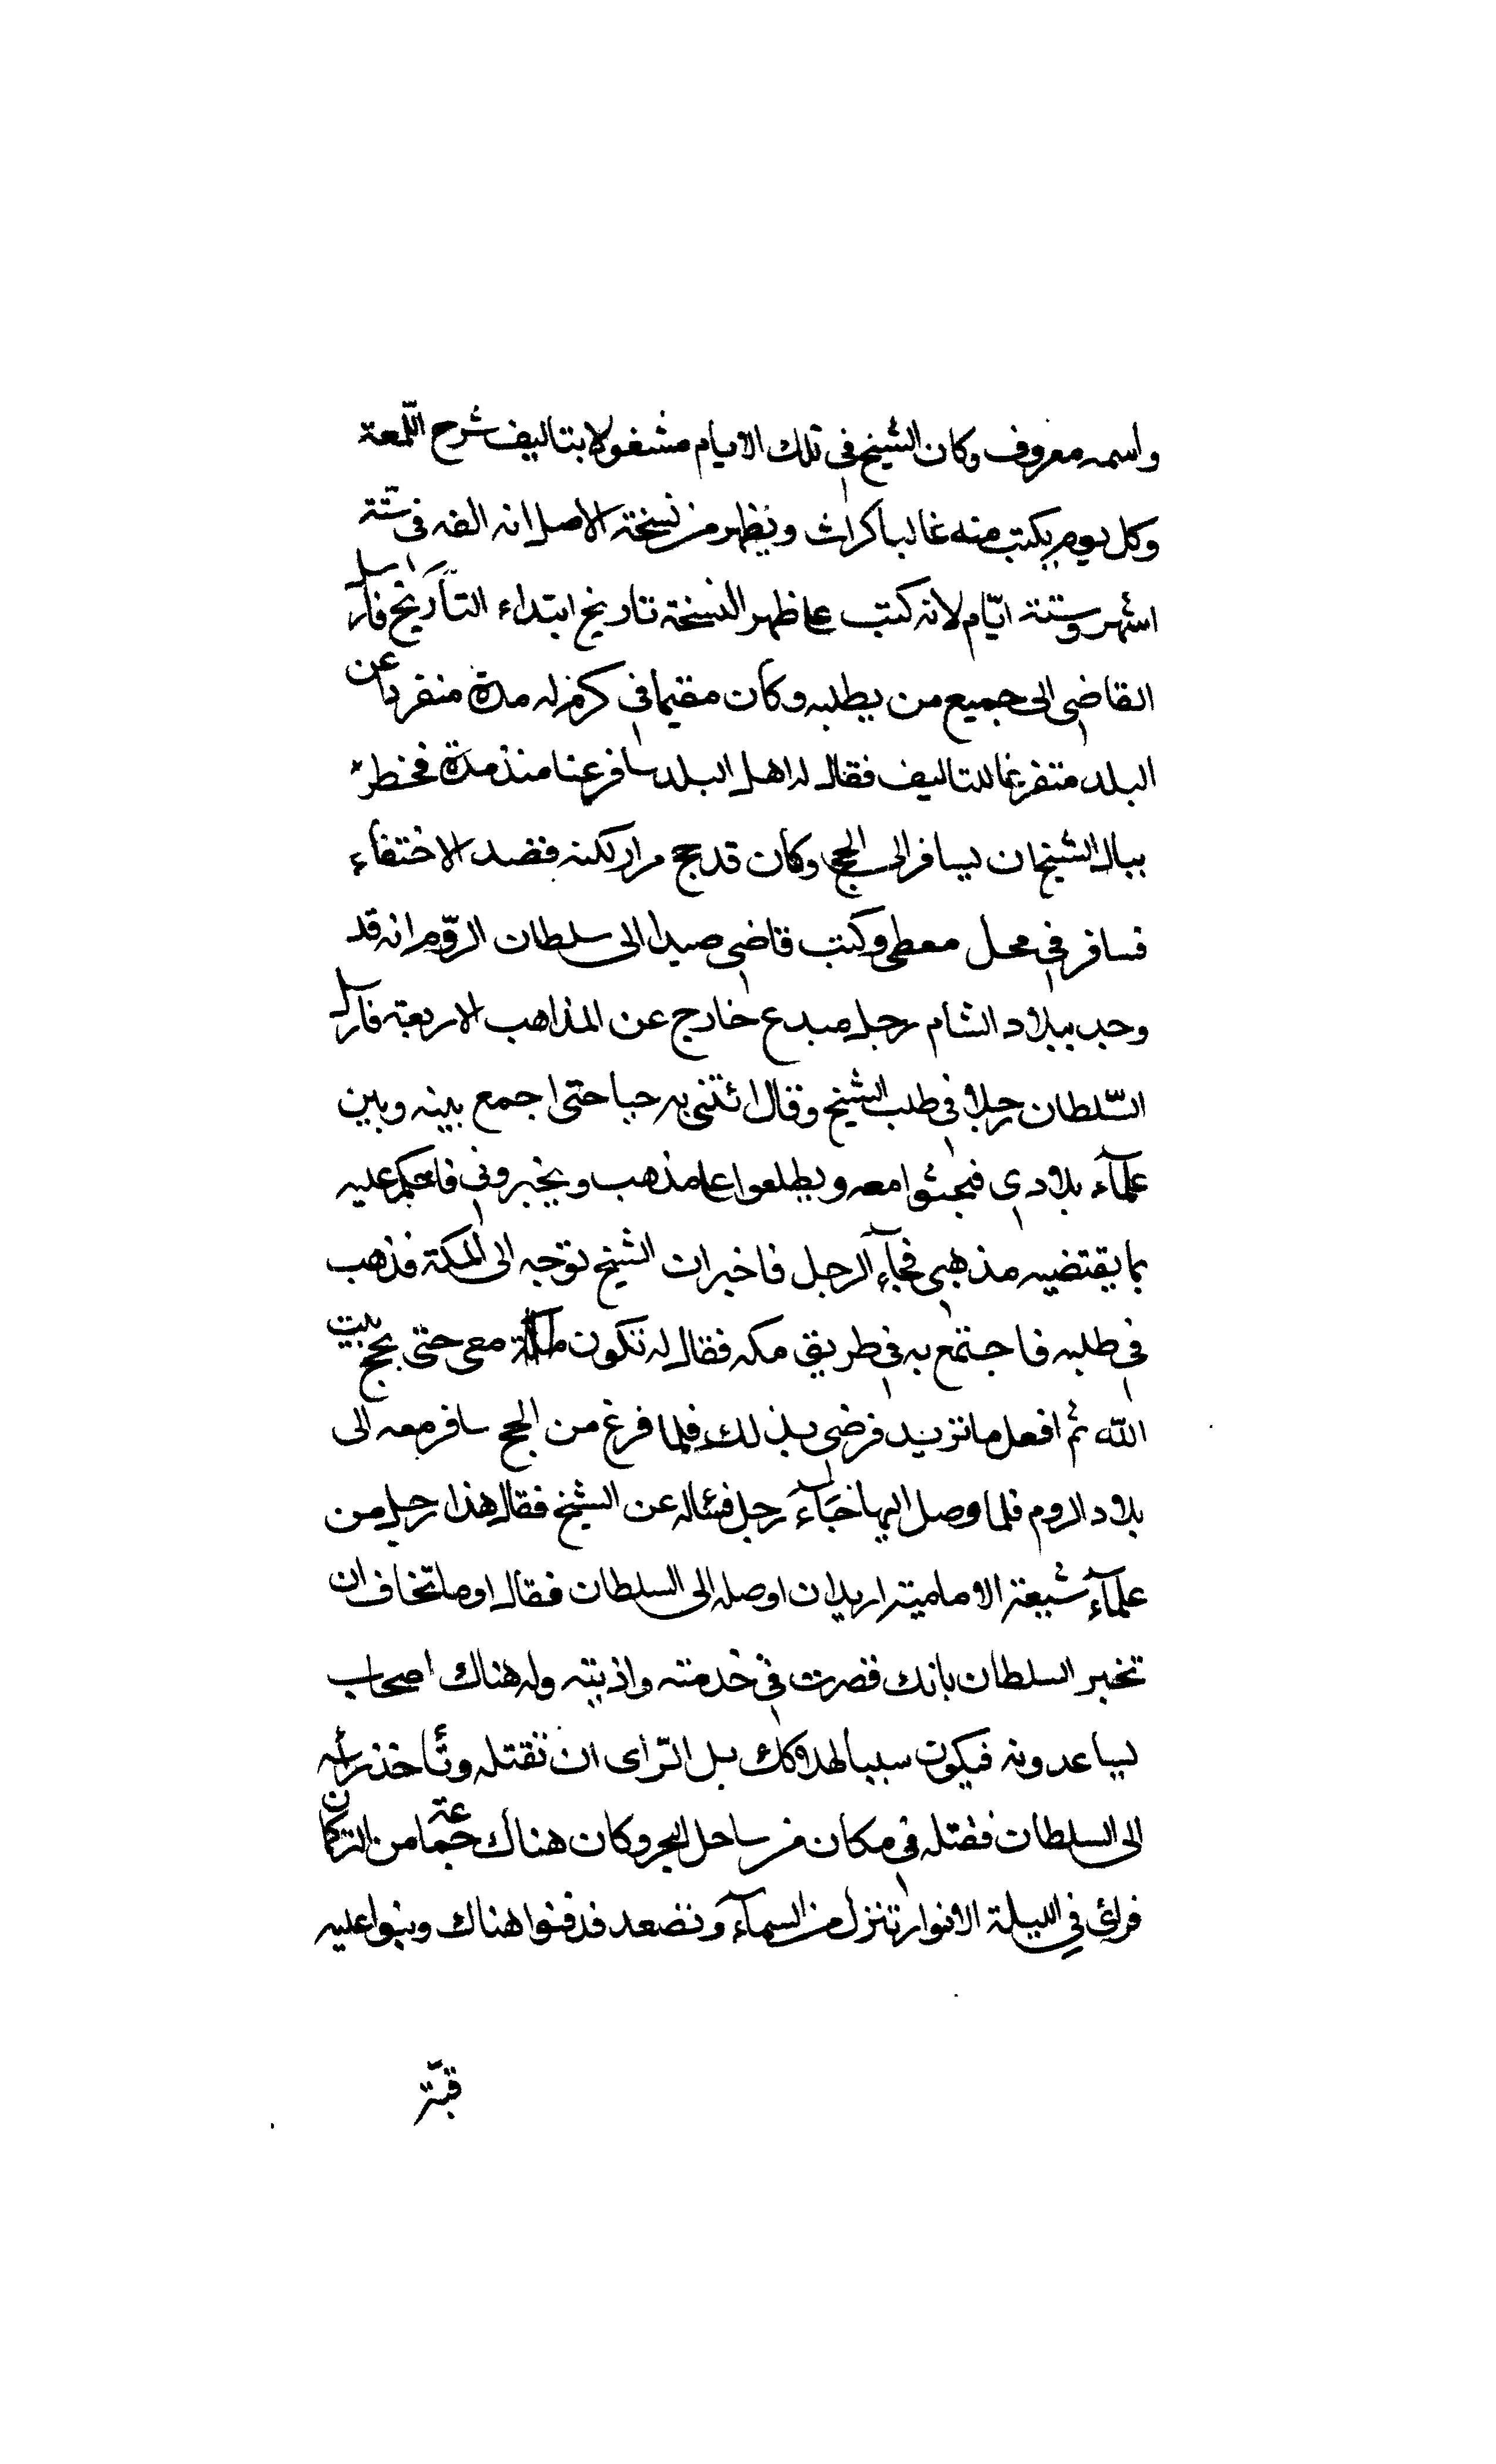 واسمه معروف وكان الشيخ فى تلك الايام مشغولا بتاليف شرح اللّمعة
وكل يوم يكتب منه غالبا كراث ويظهر من نسخة الاصل انه الفه فى ستّة
اشهر وستة ايّام لانه كتب على ظهر النسخة تاريخ ابتداء التأريخ فارسل
القاضى الى جميع من يطلبه وكان مقيما فى كرم له مدة منفردا عن
البلد متفرغا للتاليف فقال له اهل البلد سافر عنا منذ مدة فخطر
ببال الشيخ ان يسافر الى الحج وكان قد حج مرارا لكنه قصد الاختفاء
فسافر فى محل مغطى وكتب قاضى صيدا الى سلطان الرّوم انه قد
وجد ببلاد الشام رجل مبدع خارج عن المذاهب الاربعة فارسل
السّلطان رجلا فى طلب الشيخ وقال ائتنى به حيا حتى اجمع بينه وبين
علمآء بلادى فيبحثوا معه ويطلعوا على مذهب ويخبرونى فاحكم عليه
بما يقتضيه مذهبى فجآء الرجل فاخبر ان الشيخ توجه الى المكة فذهب
فى طلبه فاجتمع به فى طريق مكه فقال له تكون معى حتى نحج بيت
الله ثم افعل ما تريد فرضى بذلك فلما فرغ من الحج سافر معه الى
بلاد الروم فلما وصل اليها جآء رجل فسئاله عن الشيخ فقال هذا رجل من
علمآء شيعة الامامية اريد ان اوصله الى السلطان فقال اوما تخاف ان
تخبر السلطان بانك قصرت فى خدمته واذيته وله هناك اصحاب
يساعدونه فيكون سببا لهلاكك بل الرّاى ان تقتله وتأخذ برأسه
الى السلطان فقتله فى مكان من ساحل البحر وكان هناك جماعة من التركمان
فراى فى الليلة الانوار تنزل من السمآء وتصعد فدفنوا هناك وبنوا عليه
قبّة